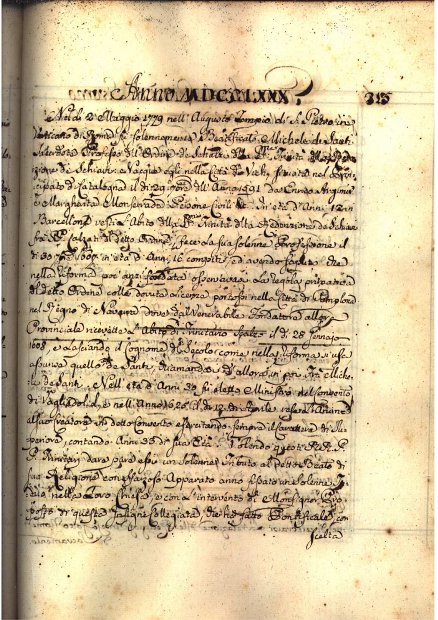 Anno MDCCLXXX. 315
Nel dì 2 Maggio 1779 nell'Augusto Tempio di S. Pietro in
Vaticano di Roma fu solennemente Beatificato Michele de Santi
Sacerdote Professo dell'Ordine de Scalzi della SS. Trinità
zione de Schiavi. Nacque egli nella Città di Vich, situata nel Prin-
cipato di Catalogna il dì 29 1591 da Enrico
e Margherita Monserrada Persone Civili, di età d'Anni 12 in
Barcellona vestì l'Abito della SS. Trinità della Redenzione de Schiavi
fra PP. Calzati di detto Ordine, fece la sua solenne Professione il
dì 30 1607 in età d'Anni 16 compiti, ed avendo
nella Riforma poi osservava la Regola primitiva
di detto Ordine colle dovute licenze portossi nella Città di Pamplona
nel Regno di Navarra dove dal Venerabile Fondatore allora
Provinciale ricevette l'Abito di Trinitario Scalzo il dì 28 Gennajo
1608 e lasciando il Cognome del Secolo, come nella Riforma si usa
assunse quello de Santi chiamandosi d'allora in poi Fra Michele
de Santi. Nell'età d'Anni 30 fu eletto Ministro del Convento
di Vagliadolid, e nell'Anno 1625 il dì 10 di Aprile rese l'Anima
al suo Creatore in detto Convento esercitando sempre il carattere di Su-
periore, contando Anni 33 di sua Età. Volendo questi RR.
PP. Trinitarj dare pure essi un solenne Tributo al detto Beato di
sua Religione con sfarzoso Apparato anno fissato una solenne
nella loro Chiesa, e con l'intervento di Monsignor Pro-
posto di questa Insigne Collegiata, che ha fatto Pontificale, con
scelta